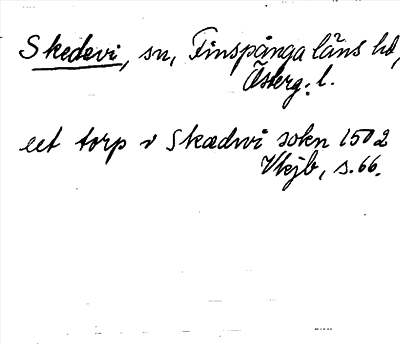 Skedevi, sn, Finspånga läns hd,
Österg:l.
eet torp v Skædwi sokn 1502
Vkjb, s.66.